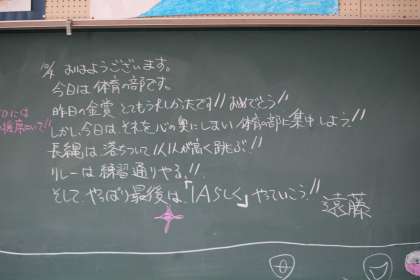 10/4 おはようございます。
今日は体育の部です。
昨日の金賞とてもうれしかったです!! おめでとう!!
しかし、今日は、それを心の奥にしまい体育の部に集中しよう!!
長縄は、落ちついて1人1人が高く跳ぶ!!
リレーは練習通りやる!!
そして、やっぱり最後は、「1Aらしく」やっていこう!!
遠藤